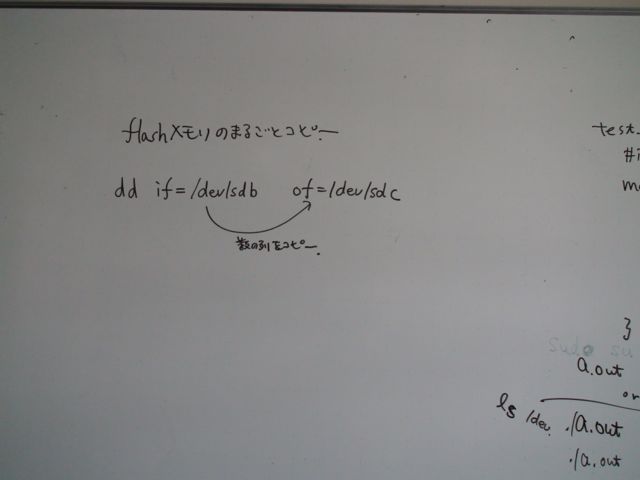 flashメモリのまるごとコピー.
dd if=/dev/sdb of=/dev/sdc
数の列をコピー.
test.
#i
ma
}
sudo su
a.out
or
ls /dev.
./a.out
./a.out